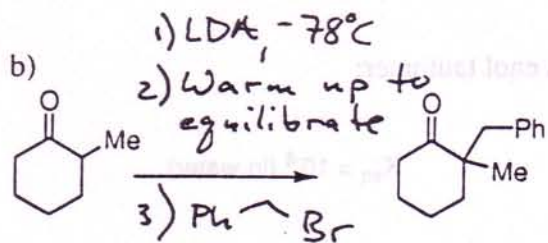 1) LDA, -78°C
b)
2) Warm up to
equilibrate
O
Me
3) Ph Br
O
Ph
Me